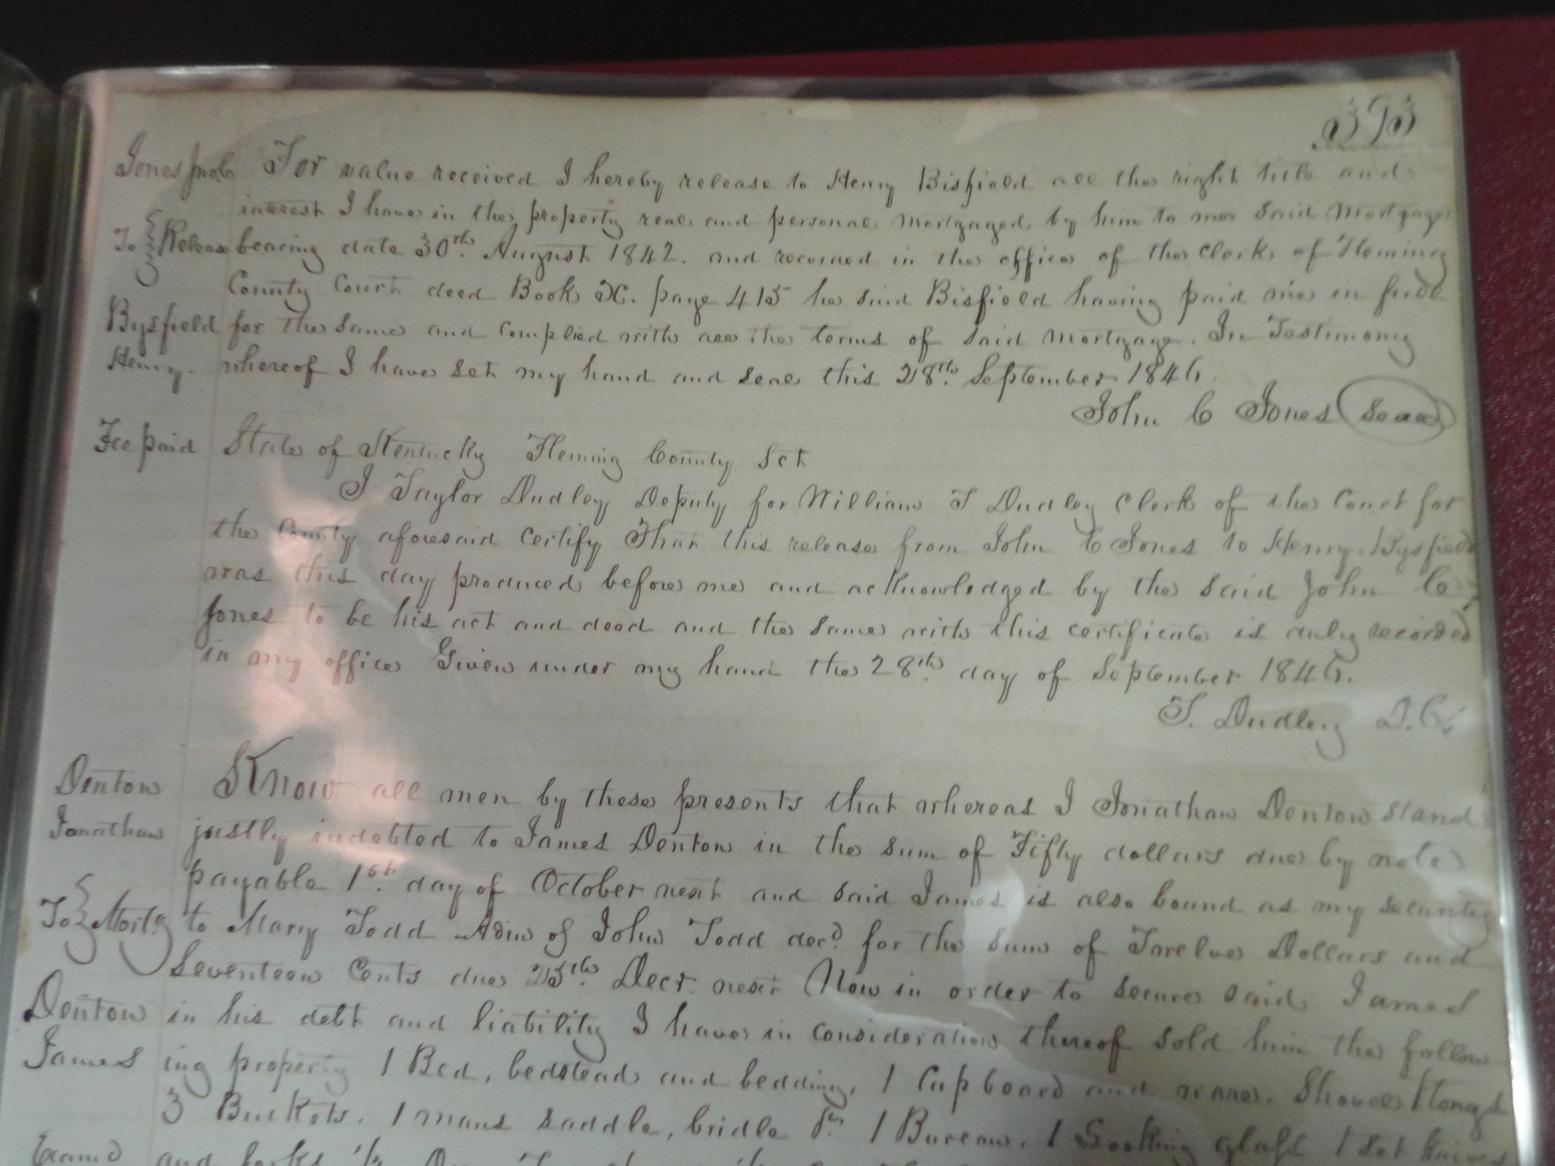 393
Jones Jno C For value received I hereby release to Henry Bisfield all the right title and
interest I have in the property real and personal mortgaged by him to me said Mortgage
To Release bearing date 30th August 1842. and recorded in the office of the Clerk of Fleming
County Court deed Book page 415 he said Bisfield having paid me in full
Bysfield for the same and complied with all the terms of said mortgage. In Testimony
Henry. whereof I have set my hand and seal this 28th September 1846.
John C Jones Seal
Fee paid State of Kentucky Fleming County Sct
I Taylor Dudley Deputy for William T Dudley Clerk of the Court for
the County aforesaid Certify That this release from John C Jones to Henry Bysfield
was this day produced before me and acknowledged by the said John C
Jones to be his act and deed and the same with this certificate is duly recorded
in my office Given under my hand the 28th day of September 1846.
T. Dudley D.C.
Denton Know all men by these presents that whereas I Jonathan Denton stand
Jonathan justly indebted to James Denton in the sum of Fifty dollars due by note
payable 1st. day of October next and said James is also bound as my security
To Mortg to Mary Todd Adm of John Todd decd for the sum of Twelve Dollars and
Seventeen Cents due 25th. Decr. next Now in order to secure said James
Denton in his debt and liability I have in consideration thereof sold him the follow
James ing property 1 Bed, bedstead and bedding, 1 Cupboard and ware. Shovel & tongs
3 Buckets. 1 mans saddle, bridle &c 1 Bureau. 1 Looking glass 1 set knives
Examd and forks